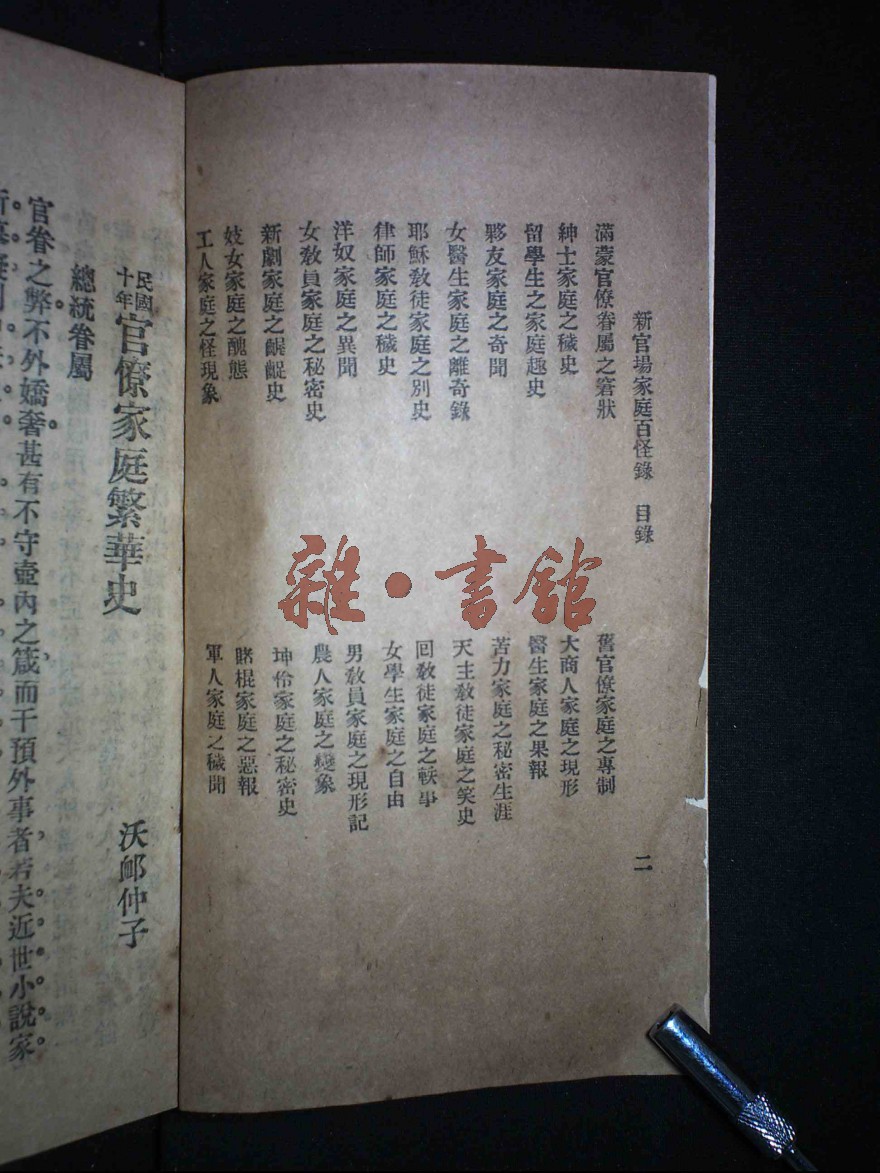 新官場家庭百怪錄　目錄
二
滿蒙官僚眷屬之窘狀
舊官僚家庭之專制
紳士家庭之穢史
大商人家庭之現形
留學生之家庭趣史
醫生家庭之果報
夥友家庭之奇聞
苦力家庭之秘密生涯
女醫生家庭之離奇錄
天主教徒家庭之笑史
耶穌教徒家庭之別史
回教徒家庭之軼事
律師家庭之穢史
女學生家庭之自由
洋奴家庭之異聞
男教員家庭之現形記
女教員家庭之秘密史
農人家庭之變象
新劇家庭之齷齪史
坤伶家庭之秘密史
妓女家庭之醜態
賭棍家庭之惡報
工人家庭之怪現象
軍人家庭之穢聞
民國十年官僚家庭繁華史
沃邱仲子
總統眷屬
官眷之弊不外嬌奢甚有不守壺內之箴而干預外事者若夫近世小說家
雜·書館